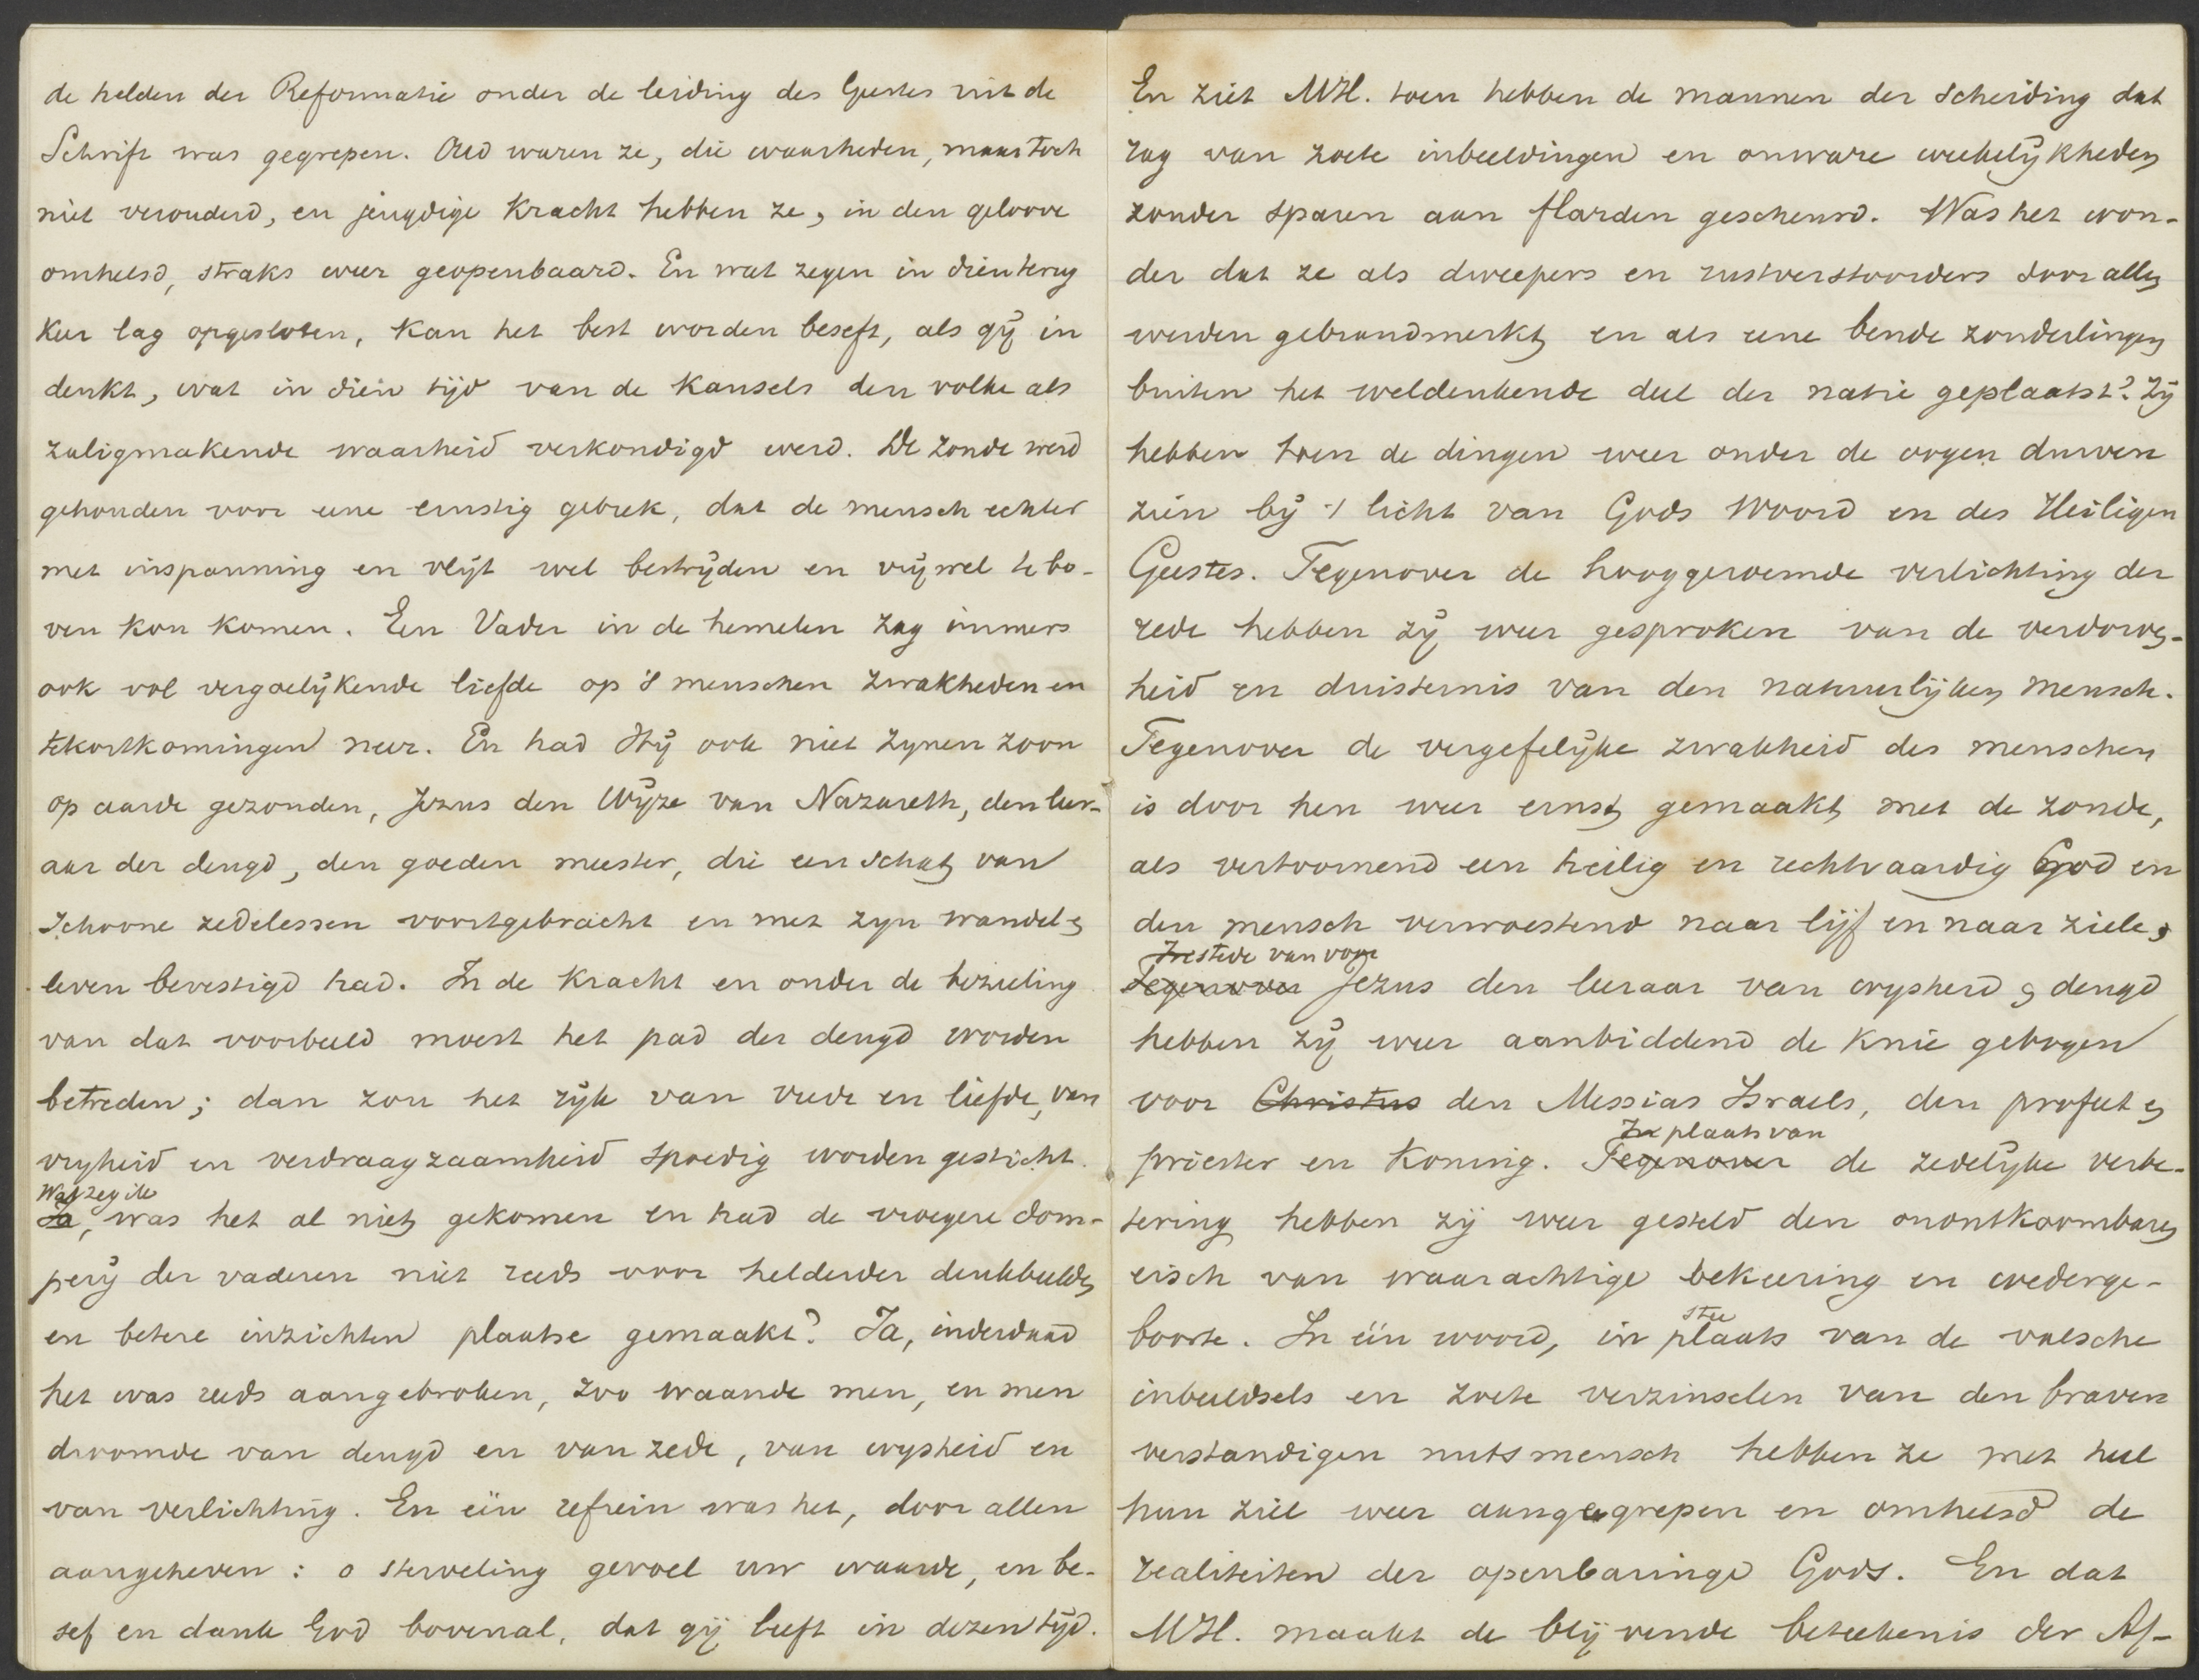 de helden der Reformatie onder de leiding des Geestes uit de
Schrift was gegrepen. Oud waren ze, die waarheden, maar toch
niet verouderd, en jeugdige kracht hebben ze, in den geloove
omhelsd, straks weer geopenbaard. En wat zegen in dien terug
keer lag opgesloten, kan het best worden beseft, als gij in
denkt, wat in dien tijd van de kansels den volke als
zaligmakende waarheid verkondigd werd. De zonde werd
gehouden voor eene ernstig gebrek, dat de mensch echter
met inspanning en vlijt wel bestrijden en vrijwel te bo-
ven kon komen. Een Vader in de hemelen zag immers
ook vol vergoelijkende liefde op 's menschen zwakheden en
tekortkomingen neer. En had Hij ook niet zijnen zoon
op aarde gezonden, Jezus den Wijze van Nazareth, den leer-
aar der deugd, den goeden meester, die een schat van
schoone zedelessen voortgebracht en met zijn wandel en
leven bevestigd had. In de kracht en onder de bezieling
van dat voorbeeld moest het pad der deugd worden
betreden; dan zou het rijk van vrede en liefde, van
vrijheid en verdraagzaamheid spoedig worden gesticht.
Wat zeg ik
Ja, was het al niet gekomen en had de vroegere dom-
perij der vaderen niet reeds voor helderder denkbeelden
en betere inzichten plaatse gemaakt? Ja, inderdaad
het was reeds aangebroken, zoo waande men, en men
droomde van deugd en van zede, van wijsheid en
van verlichting. En één refrein was het, door allen
aangeheven: o sterveling gevoel uw waarde, en be-
sef en dank God bovenal, dat gij leeft in dezen tijd.
En ziet MH. toen hebben de mannen der Scheiding dat
rag van zoete inbeeldingen en onware weekelijkheden
zonder sparen aan flarden gescheurd. Was het won-
der dat ze als dweepers en rustverstoorders door allen
werden gebrandmerkt en als eene bende zonderlingen
buiten het weldenkende deel der natie geplaatst? Zij
hebben toen de dingen weer onder de oogen durven
zien bij 't licht van Gods Woord en des Heiligen
Geestes. Tegenover de hooggeroemde verlichting der
rede hebben zij weer gesproken van de verdorven-
heid en duisternis van den natuurlijken mensch.
Tegenover de vergefelijke zwakheid des menschen
is door hen weer ernst gemaakt met de zonde,
als vertoornend een heilig en rechtvaardig God en
den mensch verwoestend naar lijf en naar ziele,
In stede van voor
Tegenover Jezus den leeraar van wijsheid en deugd
hebben zij weer aanbiddend de knie gebogen
voor Christus den Messias Israels, den profeet en
In plaats van
priester en Koning. Tegenover de zedelijke verbe-
tering hebben zij weer gesteld den onontkoombaren
eisch van waarachtige bekeering en wederge-
stee
boorte. In één woord, in plaats van de valsche
inbeeldsels en zoete verzinselen van den braven
verstandigen nutsmensch hebben ze met heel
hun ziel weer aangegrepen en omhelsd de
realiteiten der openbaringe Gods. En dat
MH. maakt de blijvende beteekenis der Af-